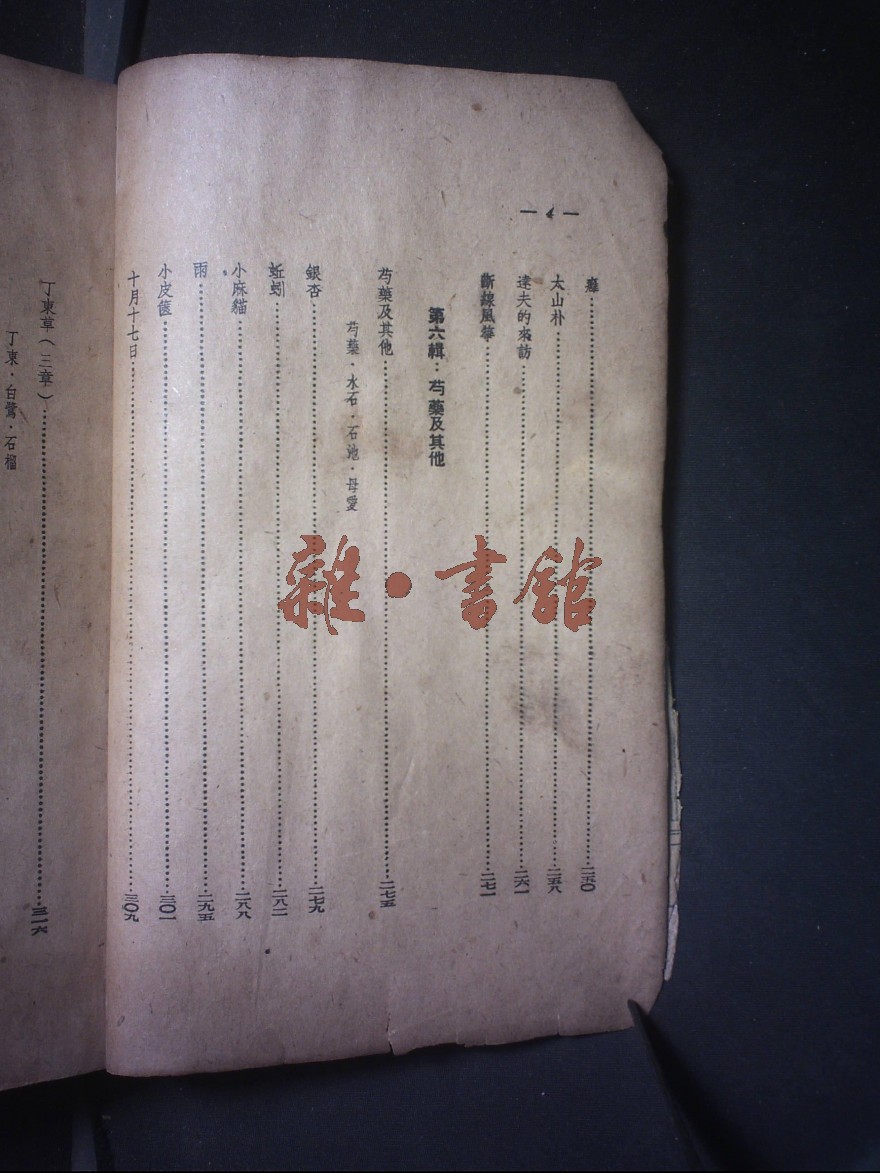 — 4 —
癰⋯⋯二五〇
太山朴⋯⋯二五八
達夫的來訪⋯⋯二六一
斷線風箏⋯⋯二七一
第六輯：芍藥及其他
芍藥及其他⋯⋯二七五
芍藥・水石・石池・母愛
銀杏⋯⋯二七九
蚯蚓⋯⋯二八二
小麻貓⋯⋯二八八
雨⋯⋯二九五
小皮篋⋯⋯三〇一
十月十七日⋯⋯三〇九
丁東草（三章）⋯⋯三一六
丁東・白鷺・石榴
雜・書館